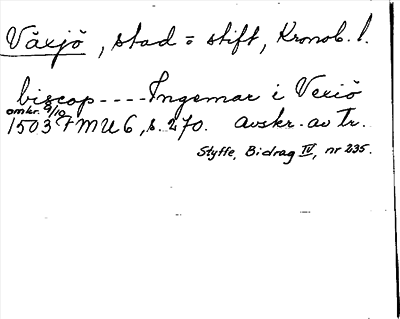 Växjö, stad = stift, Kronob. l.
biscop ---- Ingemar i Vexiö
omkr. 9/10
1503 FMU 6, s. 270. Avskr. av Tr.
Styffe, Bidrag IV, nr 235.